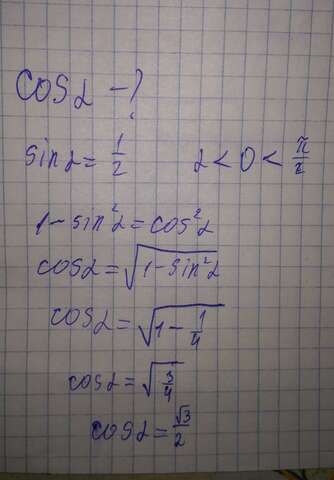 cos α - ?
sin α = 1/2    α < 0 < π/2
1 - sin²α = cos²α
cos α = √(1 - sin²α)
cos α = √(1 - 1/4)
cos α = √(3/4)
cos α = √3/2